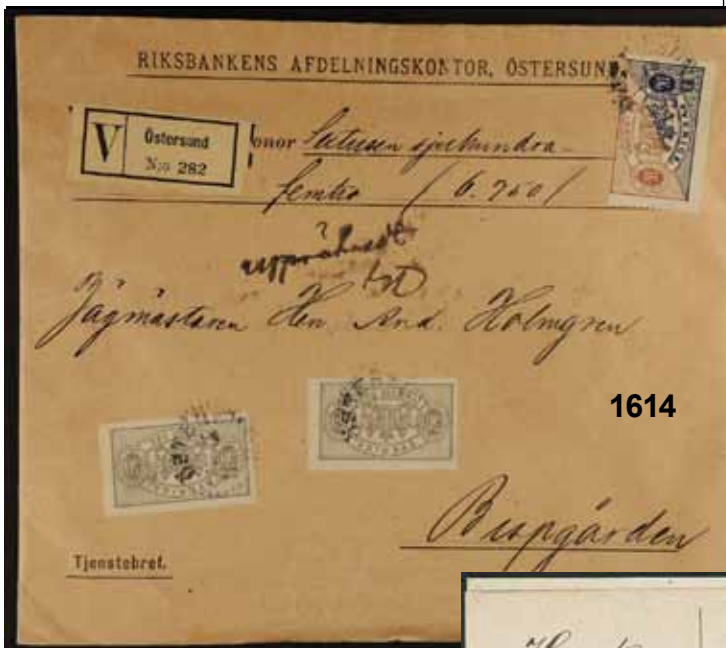 RIKSBANKENS AFDELNINGSKONTOR, ÖSTERSUND
V Östersund
No 282
onor Sextusen sjuhundra-
femtio / 6.750 /
Jägmästaren Herr And. Holmgren
1614
Bispgården
Tjenstebref.